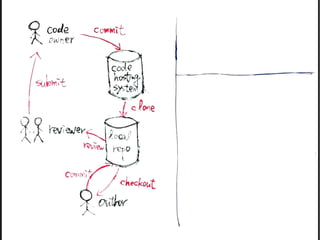 code
owner
commit
code
hosting
system
submit
clone
reviewer
review
local
repo
commit
checkout
author